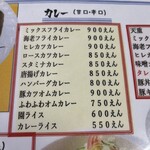 カレー(甘口・辛口)
ミックスフライカレー 900えん
海老フライカレー 900えん
ヒレカツカレー 900えん
ロースカツカレー 850えん
スタミナカレー 850えん
唐揚げカレー 850えん
ハンバーグカレー 800えん
豚カツオムカレー 900えん
ふわふわオムカレー 750えん
園ライス 600えん
カレーライス 550えん